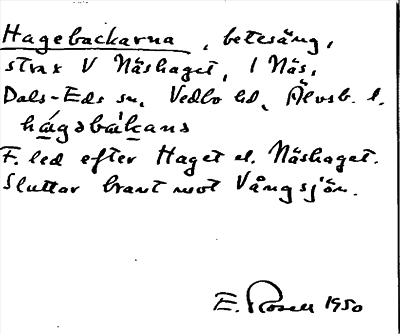 Hagebackarna, betesäng,
strax V Näshaget, 1 Näs,
Dals-Eds sn, Vedbo hd, Älvsb. l.
hágəbàkans
F. led efter Haget el. Näshaget.
Sluttar brant mot Vångsjön.
E. Rosell 1950